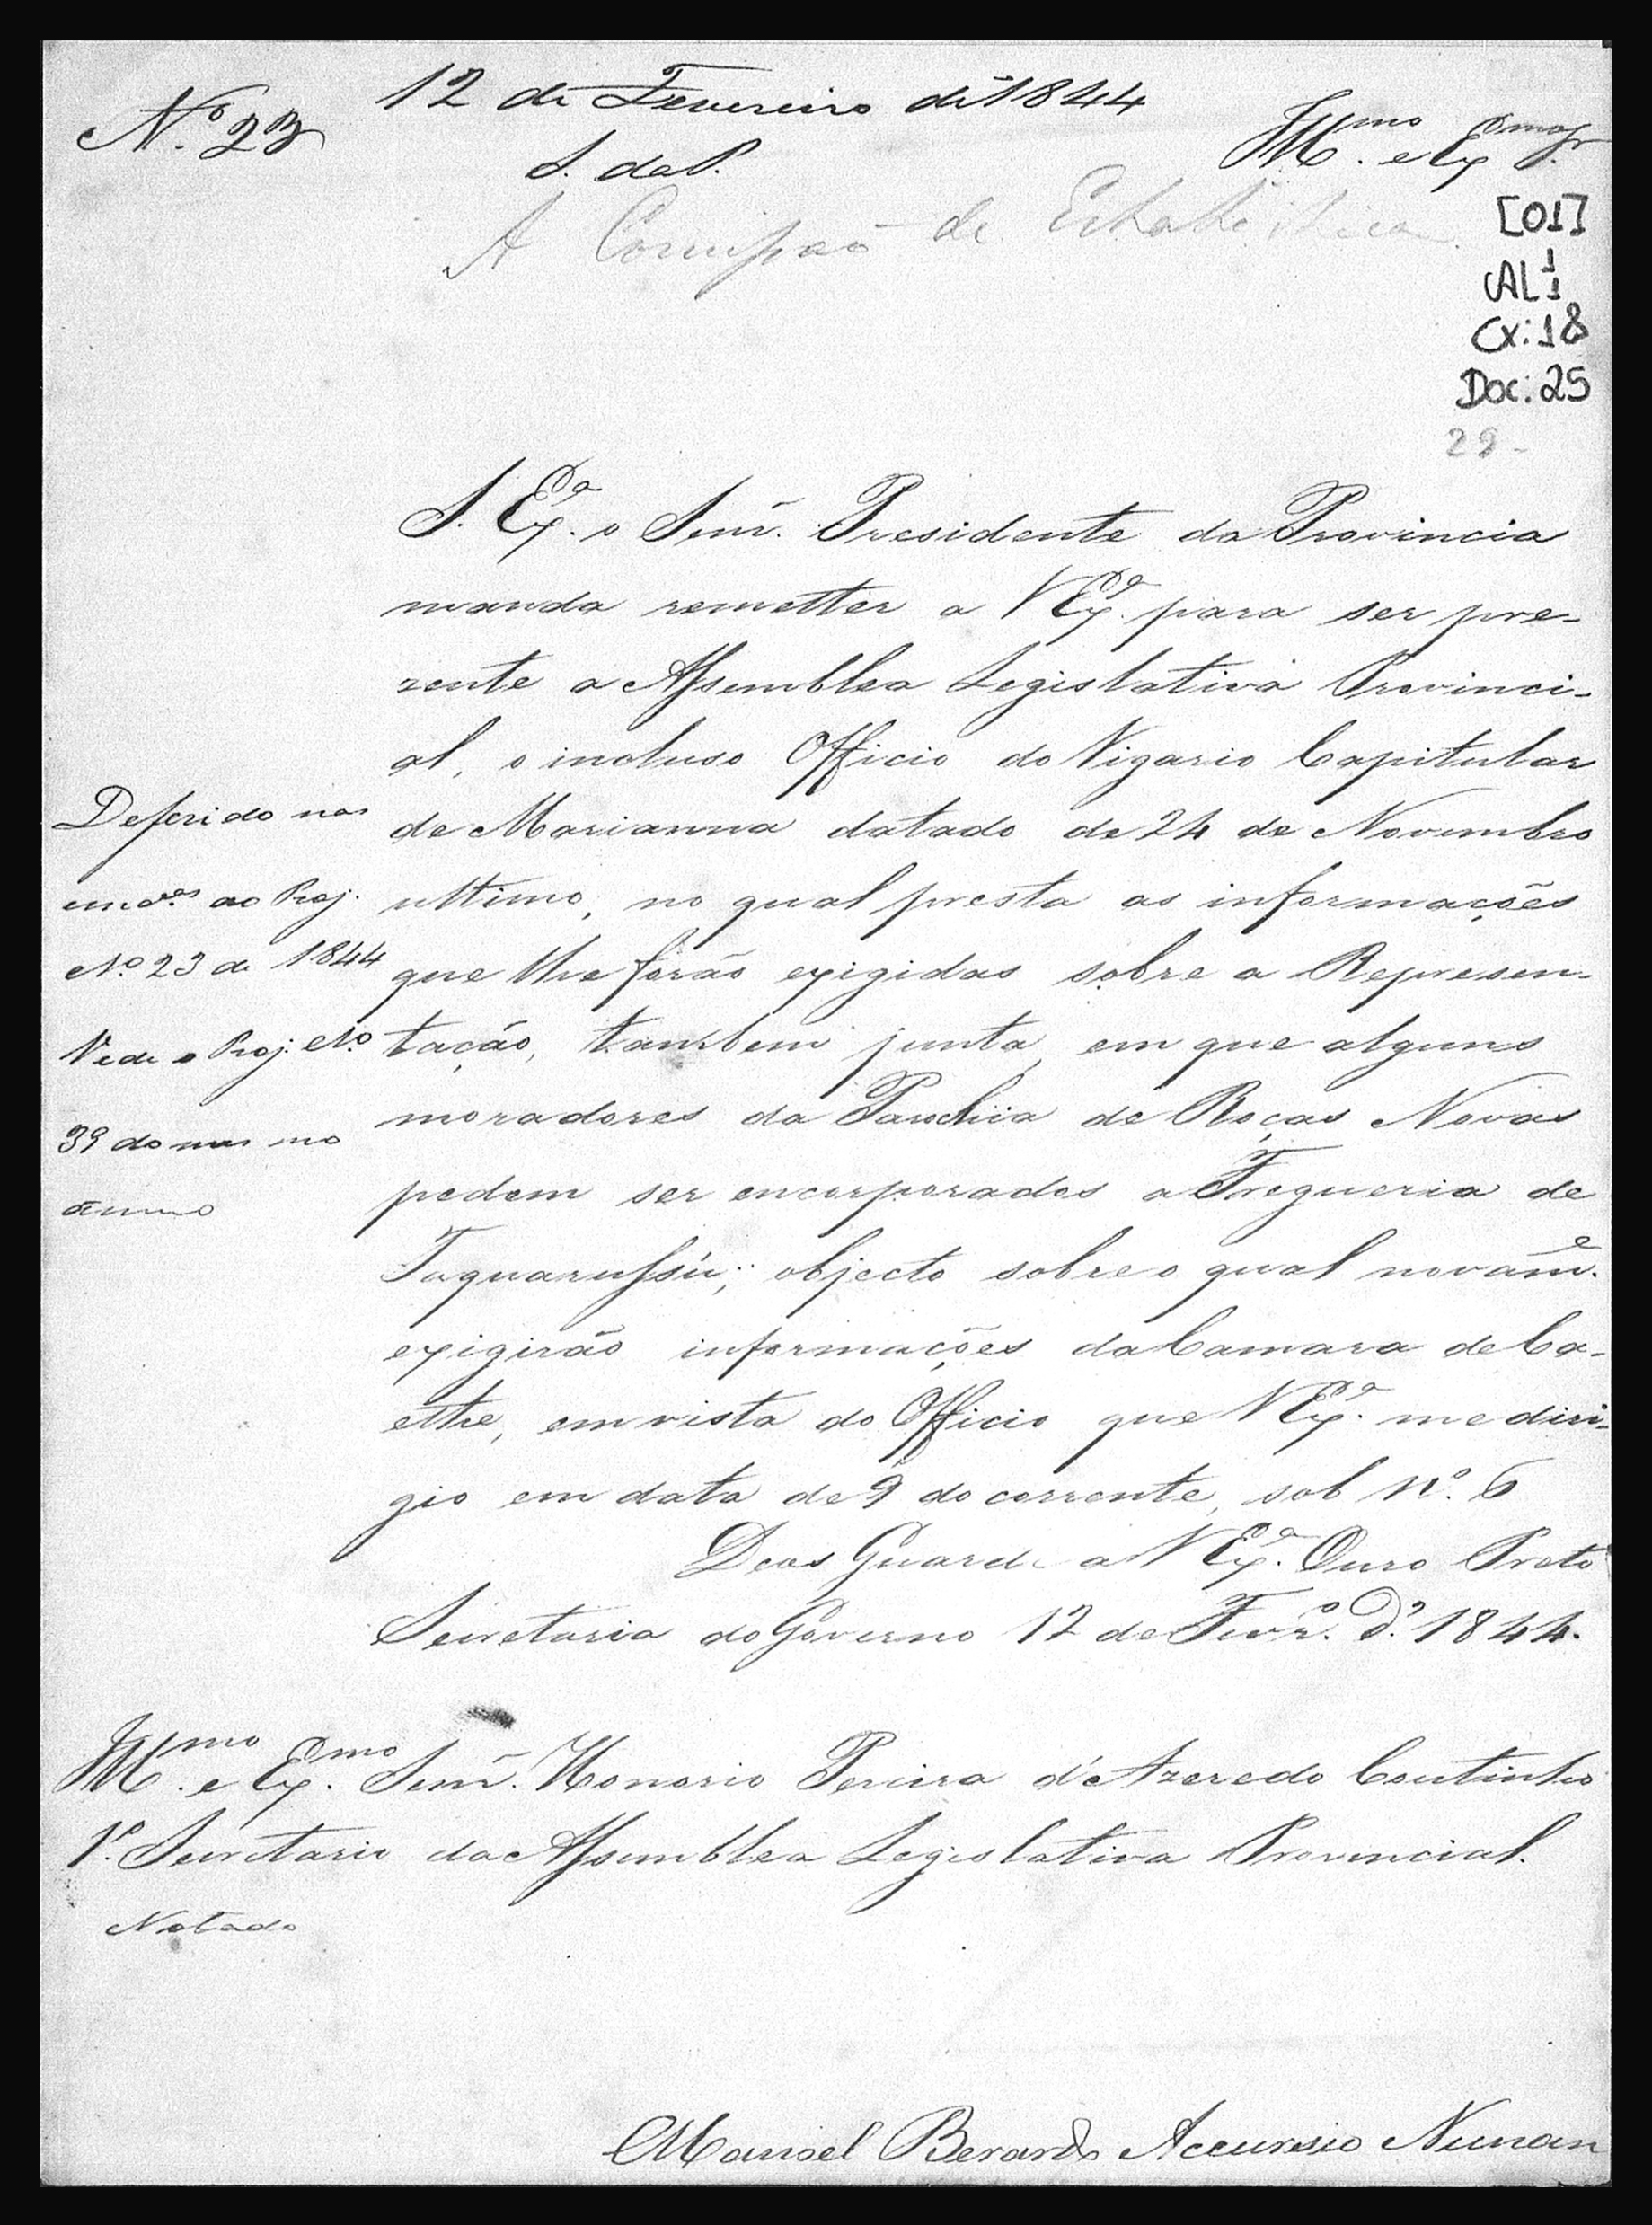 Nº. 23
12 de Fevereiro de 1844
Illmo. e Exmo Sr.
S. da P.
A Comissaõ de Estatistica
[01]
AL 1
1
Cx: 18
Doc: 25
29
S. Exª. o Senr. Presidente da Provincia
manda remetter a V Exª. para ser pre-
zente a Assemblea Legislativa Provinci-
al, o incluso Officio do Vigario Capitular
de Marianna datado de 24 de Novembro
ultimo, no qual presta as informações
que lhe forão exigidas sobre a Represen-
tação, tambem junta, em que alguns
moradores da Parochia de Roças Novas
pedem ser encorporados a Fregueria de
Taquarussú; objecto sobre o qual novame.
exigirão informações da Camara de Ca-
ethe, em vista do Officio que V Exª. me diri-
gio em data de 9 do corrente, sob nº. 6
Deos Guarde a V Exª. Ouro Preto
Secretaria do Governo 12 de Fevrº. dº. 1844.
Deferido nas
emdas. ao Proj.
Nº 23 de 1844
Vede o Proj. Nº
39 do mesmo
anno
Illmo. e Exmo. Senr. Honorio Pereira d'Azeredo Coutinho
1º. Secretario da Assemblea Legislativa Provincial.
Notado
Manoel Berardo Accursio Nunan